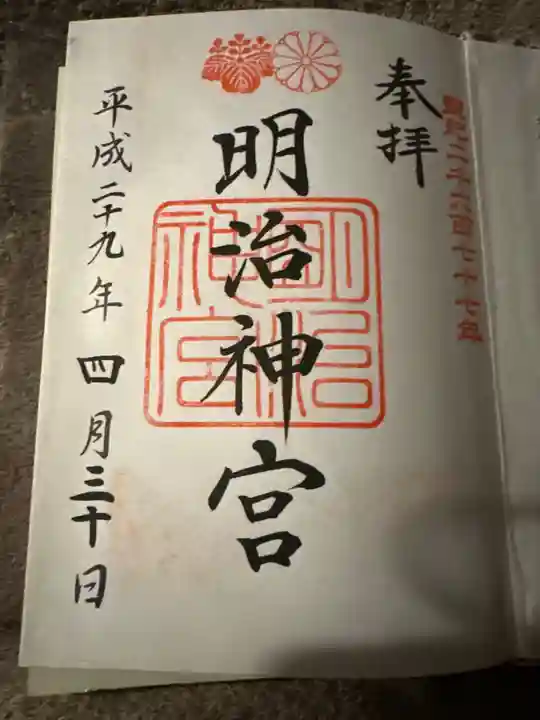 奉拝
皇紀二千六百七十七年
明治神宮
明治神宮
平成二十九年四月三十日